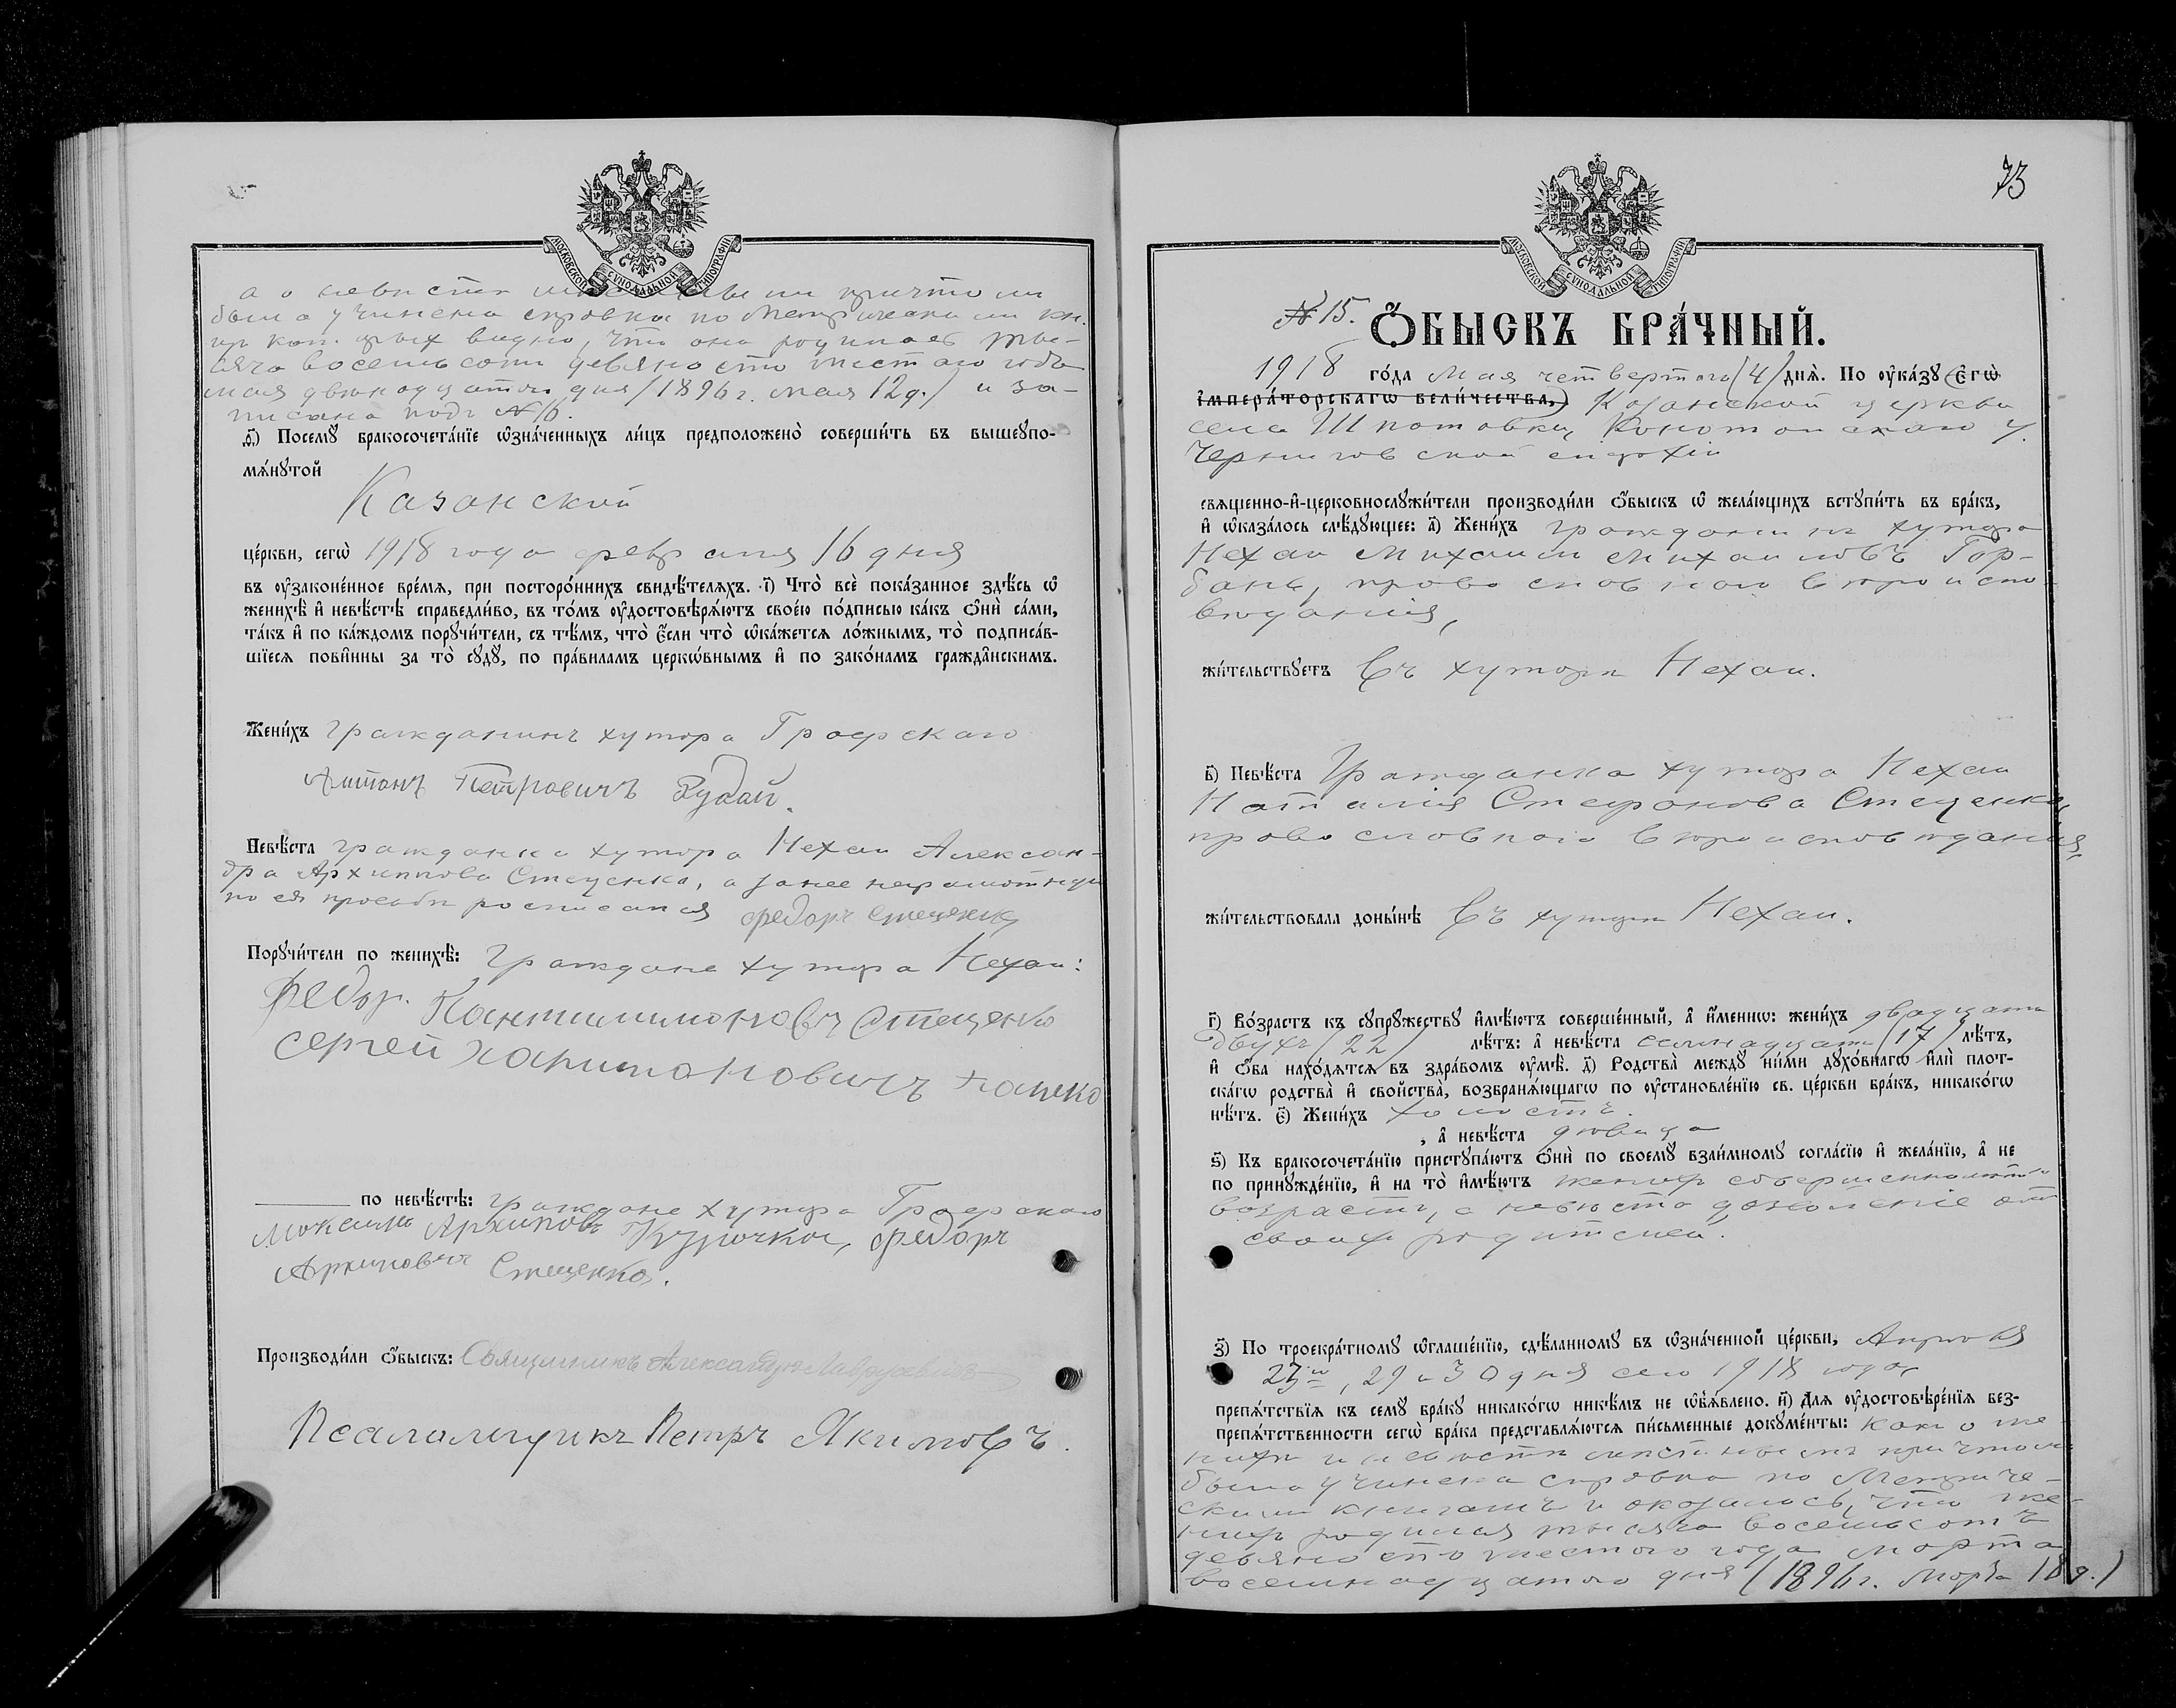 МОСКОВСКОЙ СѴНОДАЛЬНОЙ ТИПОГРАФІИ
а о невѣстѣ причтомъ
была учинена справка по Метрическимъ кн.
изъ кот‑рыхъ видно, что она родилась ты-
сяча восемьсотъ девяносто шестаго года
мая двѣнадцатаго дня /1896 г. мая 12 д./ и за-
писана подъ № 16.
ѳ҃) Посемꙋ̀ бракосочета́нїе ѡ҆зна́ченныхъ ли́цъ предположено̀ соверши́ть въ вышеꙋпо-
мѧ́нꙋтой
Казанской
це́ркви, сегѡ̀ 1918 года февраля 16 дня
въ ᲂу҆законе́нное вре́мѧ, при посторо́ннихъ свидѣ́телѧхъ. і҃) Что̀ всѐ пока́занное здѣ́сь ѡ҆
женихѣ̀ и҆ невѣ́стѣ справедли́во, въ то́мъ ᲂу҆достовѣрѧ́ютъ свое́ю по́дписью ка́къ ѻ҆нѝ са́ми,
та́къ и҆ по ка́ждомъ порꙋчи́тели, съ тѣ́мъ, что̀ є҆́сли что̀ ѡ҆ка́жетсѧ ло́жнымъ, то̀ подписа́в-
шїесѧ пови́нны за то̀ сꙋдꙋ̀, по пра́виламъ церкѡ́внымъ и҆ по зако́намъ гражда̑нскимъ.
Жени́хъ гражданинъ хутора Графскаго
Антонъ Петровичъ Рудай.
Невѣ́ста гражданка хутора Нехаи Алексан-
дра Архиппова Стеценко, а за нее неграмотную
по ея просьбѣ росписался Федоръ Стеценко
Порꙋчи́тели по женихѣ̀: Граждане хутора Нехаи:
Федор. Пантилимоновъ Стеценко
Сергей Харитоновичъ
по невѣ́стѣ: граждане хутора Графскаго
Моксимъ Архиповъ Федоръ
Архиповичъ Стеценко.
Производи́ли ѻ҆́быскъ: Священникъ Александръ
Псаломщикъ Петръ Якимовъ.
73
МОСКОВСКОЙ СѴНОДАЛЬНОЙ ТИПОГРАФІИ
№ 15.
Ѻ҆́БЫСКЪ БРА́ЧНЫЙ.
1918 го́да Мая четвертаго /4/ днѧ̀. По ᲂу҆ка́зꙋ (Є҆гѡ̀
І҆мпера́торскагѡ вели́чества,) Казанской церкви
села Шпотовки, Конотопскаго у.
Черниговской епархіи
сщ҃е́нно-и҆-церковнослꙋжи́тели производи́ли ѻ҆́быскъ ѡ҆ жела́ющихъ встꙋпи́ть въ бра́къ,
и҆ ѡ҆каза́лось слѣ́дꙋющее: а҃) Жени́хъ гражданинъ хутора
Нехаи Михаилъ Михаиловъ Гор-
бань, православнаго вѣроиспо-
вѣданія,
жи́тельствꙋетъ Въ хуторѣ Нехаи.
в҃) Невѣ́ста Гражданка хутора Нехаи
Наталія Стефанова Стеценко,
православнаго вѣроисповѣданія,
жи́тельствовала доны́нѣ Въ хуторѣ Нехаи.
г҃) Во́зрастъ къ сꙋпрꙋ́жествꙋ и҆мѣ́ютъ соверше́нный, а҆ и҆́меннѡ: жени́хъ двадцати
двухъ /22/ лѣ́тъ: а҆ невѣ́ста семнадцати /17/ лѣ́тъ,
и҆ ѻ҆́ба нахо́дѧтсѧ въ здра́вомъ ᲂу҆мѣ̀. д҃) Родства̀ междꙋ̀ ни́ми дꙋхо́внагѡ и҆лѝ плот-
ска́гѡ родства̀ и҆ сво́йства̀, возбранѧ́ющагѡ по ᲂу҆становле́нїю св. це́ркви бра́къ, никако́гѡ
нѣ́тъ. є҃) Жени́хъ холостъ.
, а҆ невѣ́ста дѣвица
ѕ҃) Къ бракосочета́нїю пристꙋпа́ютъ ѻ҆нѝ по своемꙋ̀ взаи́мномꙋ согла́сїю и҆ жела́нїю, а҆ не
по принꙋжде́нїю, и҆ на то̀ и҆мѣ́ютъ женихъ совершеннолѣтній
возрастъ, а невѣста дозволеніе отъ
своихъ родителей.
з҃) По троекра́тномꙋ ѡ҆глаше́нїю, сдѣ́ланномꙋ въ ѡ҆зна́ченной це́ркви, Апрѣля
23го, 29 и 30 дня сего 1918 года
препѧ́тствїѧ къ семꙋ̀ бра́кꙋ никако́гѡ никѣ́мъ не ѡ҆б̾ѧ́влено. и҃) Длѧ ᲂу҆достовѣре́нїѧ без-
препѧ́тственности сегѡ̀ бра́ка представлѧ́ютсѧ пи́сьменные докꙋме́нты: како о же-
нихѣ и невѣстѣ мѣстнымъ причтомъ
была учинена справка по Метриче-
скимъ книгамъ и оказалось, что же-
нихъ родился тысяча восемьсотъ
девяносто шестого года марта
восемнадцатаго дня (1896 г. Марта 18 д.)